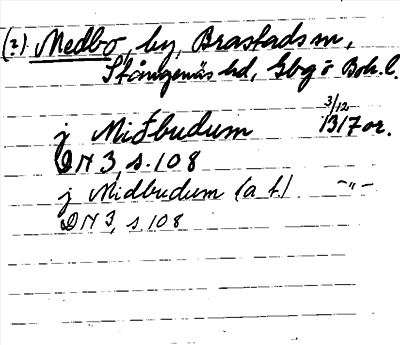 (?) Medbo, by, Brastads sn,
Stångenäs hd, Gbg o Boh. l.
3/12
j Miðbudum 1317 or.
DN 3, s. 108
j Midbudum (a. t.) -"-
DN 3, s 108